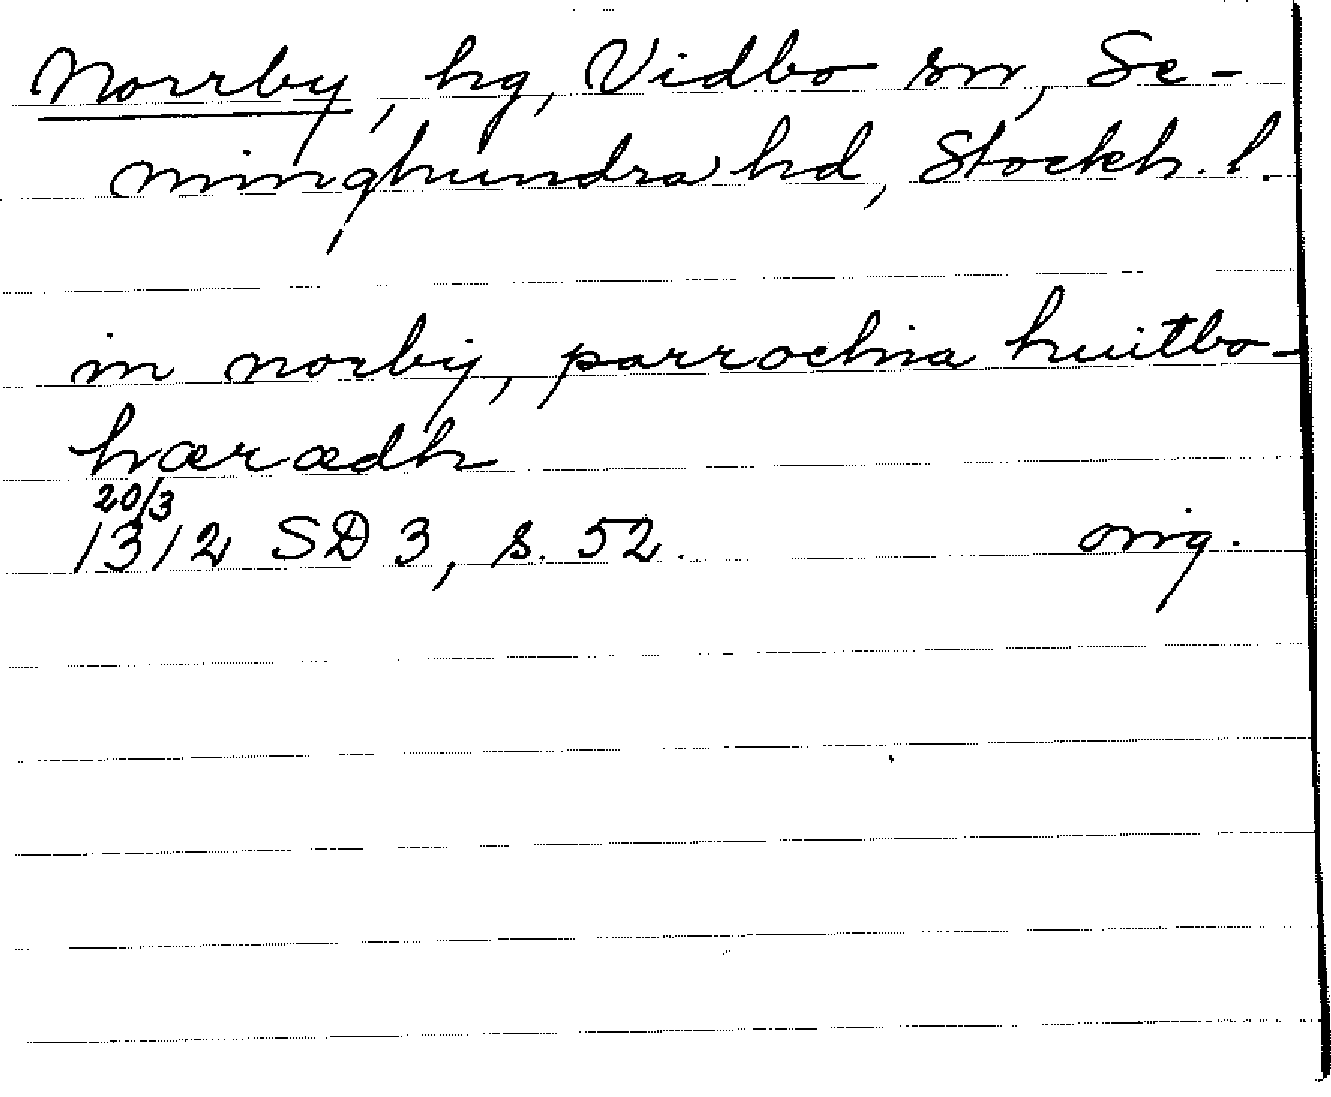 Norrby, hg, Vidbo sn, Se-
minghundra hd, Stockh. l.
in norby, parrochia huitbo-
hærædh
20/3
1312 SD 3, s. 52. orig.